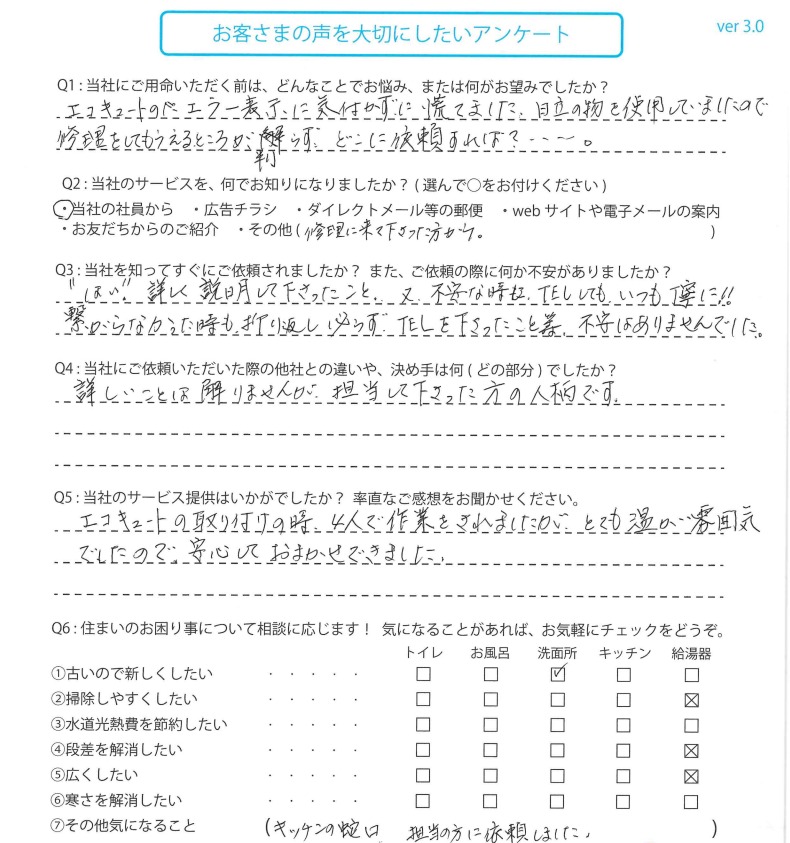 お客さまの声を大切にしたいアンケート
ver 3.0
Q1：当社にご用命いただく前は、どんなことでお悩み、または何がお望みでしたか？
エコキュートのエラー表示に気付かずに慌てました、日立の物を使用していましたので
修理をしてもらえるところが、判らず、どこに依頼すれば？----。
Q2：当社のサービスを、何でお知りになりましたか？（選んで○をお付けください）
・当社の社員から　・広告チラシ　・ダイレクトメール等の郵便　・web サイトや電子メールの案内
・お友だちからのご紹介　・その他（修理に来て下さった方から。）
Q3：当社を知ってすぐにご依頼されましたか？ また、ご依頼の際に何か不安がありましたか？
"はい" 詳しく説明して下さったこと、又、不安な時も、TELしても、いつも丁寧に!!
繋がらなかった時も、折り返し必らず、TELを下さったこと等、不安はありませんでした。
Q4：当社にご依頼いただいた際の他社との違いや、決め手は何（どの部分）でしたか？
詳しいことは解りませんが、担当して下さった方の人柄です。
Q5：当社のサービス提供はいかがでしたか？ 率直なご感想をお聞かせください。
エコキュートの取り付けの時、4人で作業をされましたが、とても温かい雰囲気
でしたので、安心しておまかせできました。
Q6：住まいのお困り事について相談に応じます！ 気になることがあれば、お気軽にチェックをどうぞ。
トイレ　お風呂　洗面所　キッチン　給湯器
①古いので新しくしたい　・・・・・　☐　☐　☑　☐　☐
②掃除しやすくしたい　・・・・・　☐　☐　☐　☐　☒
③水道光熱費を節約したい　・・・・・　☐　☐　☐　☐　☐
④段差を解消したい　・・・・・　☐　☐　☐　☐　☒
⑤広くしたい　・・・・・　☐　☐　☐　☐　☒
⑥寒さを解消したい　・・・・・　☐　☐　☐　☐　☐
⑦その他気になること　（キッチンの蛇口　担当の方に依頼しました、）